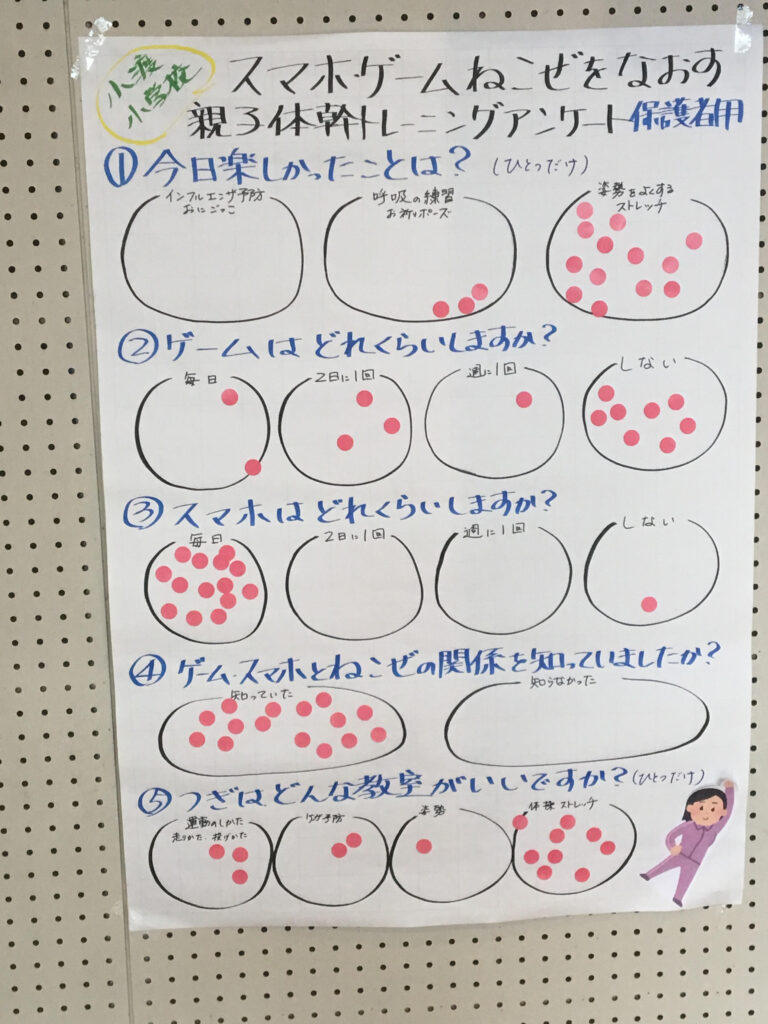 小渡
小学校
スマホ・ゲームねこぜをなおす
親子体幹トレーニングアンケート保護者用
①今日楽しかったことは？（ひとつだけ）
インフルエンザ予防
おにごっこ
呼吸の練習
お祈りポーズ
姿勢をよくする
ストレッチ
②ゲームはどれくらいしますか？
毎日
2日に1回
週に1回
しない
③スマホはどれくらいしますか？
毎日
2日に1回
週に1回
しない
④ゲーム・スマホとねこぜの関係を知っていましたか？
知っていた
知らなかった
⑤つぎはどんな教室がいいですか？（ひとつだけ）
運動のしかた
走りかた・投げかた
ケガ予防
姿勢
体操ストレッチ